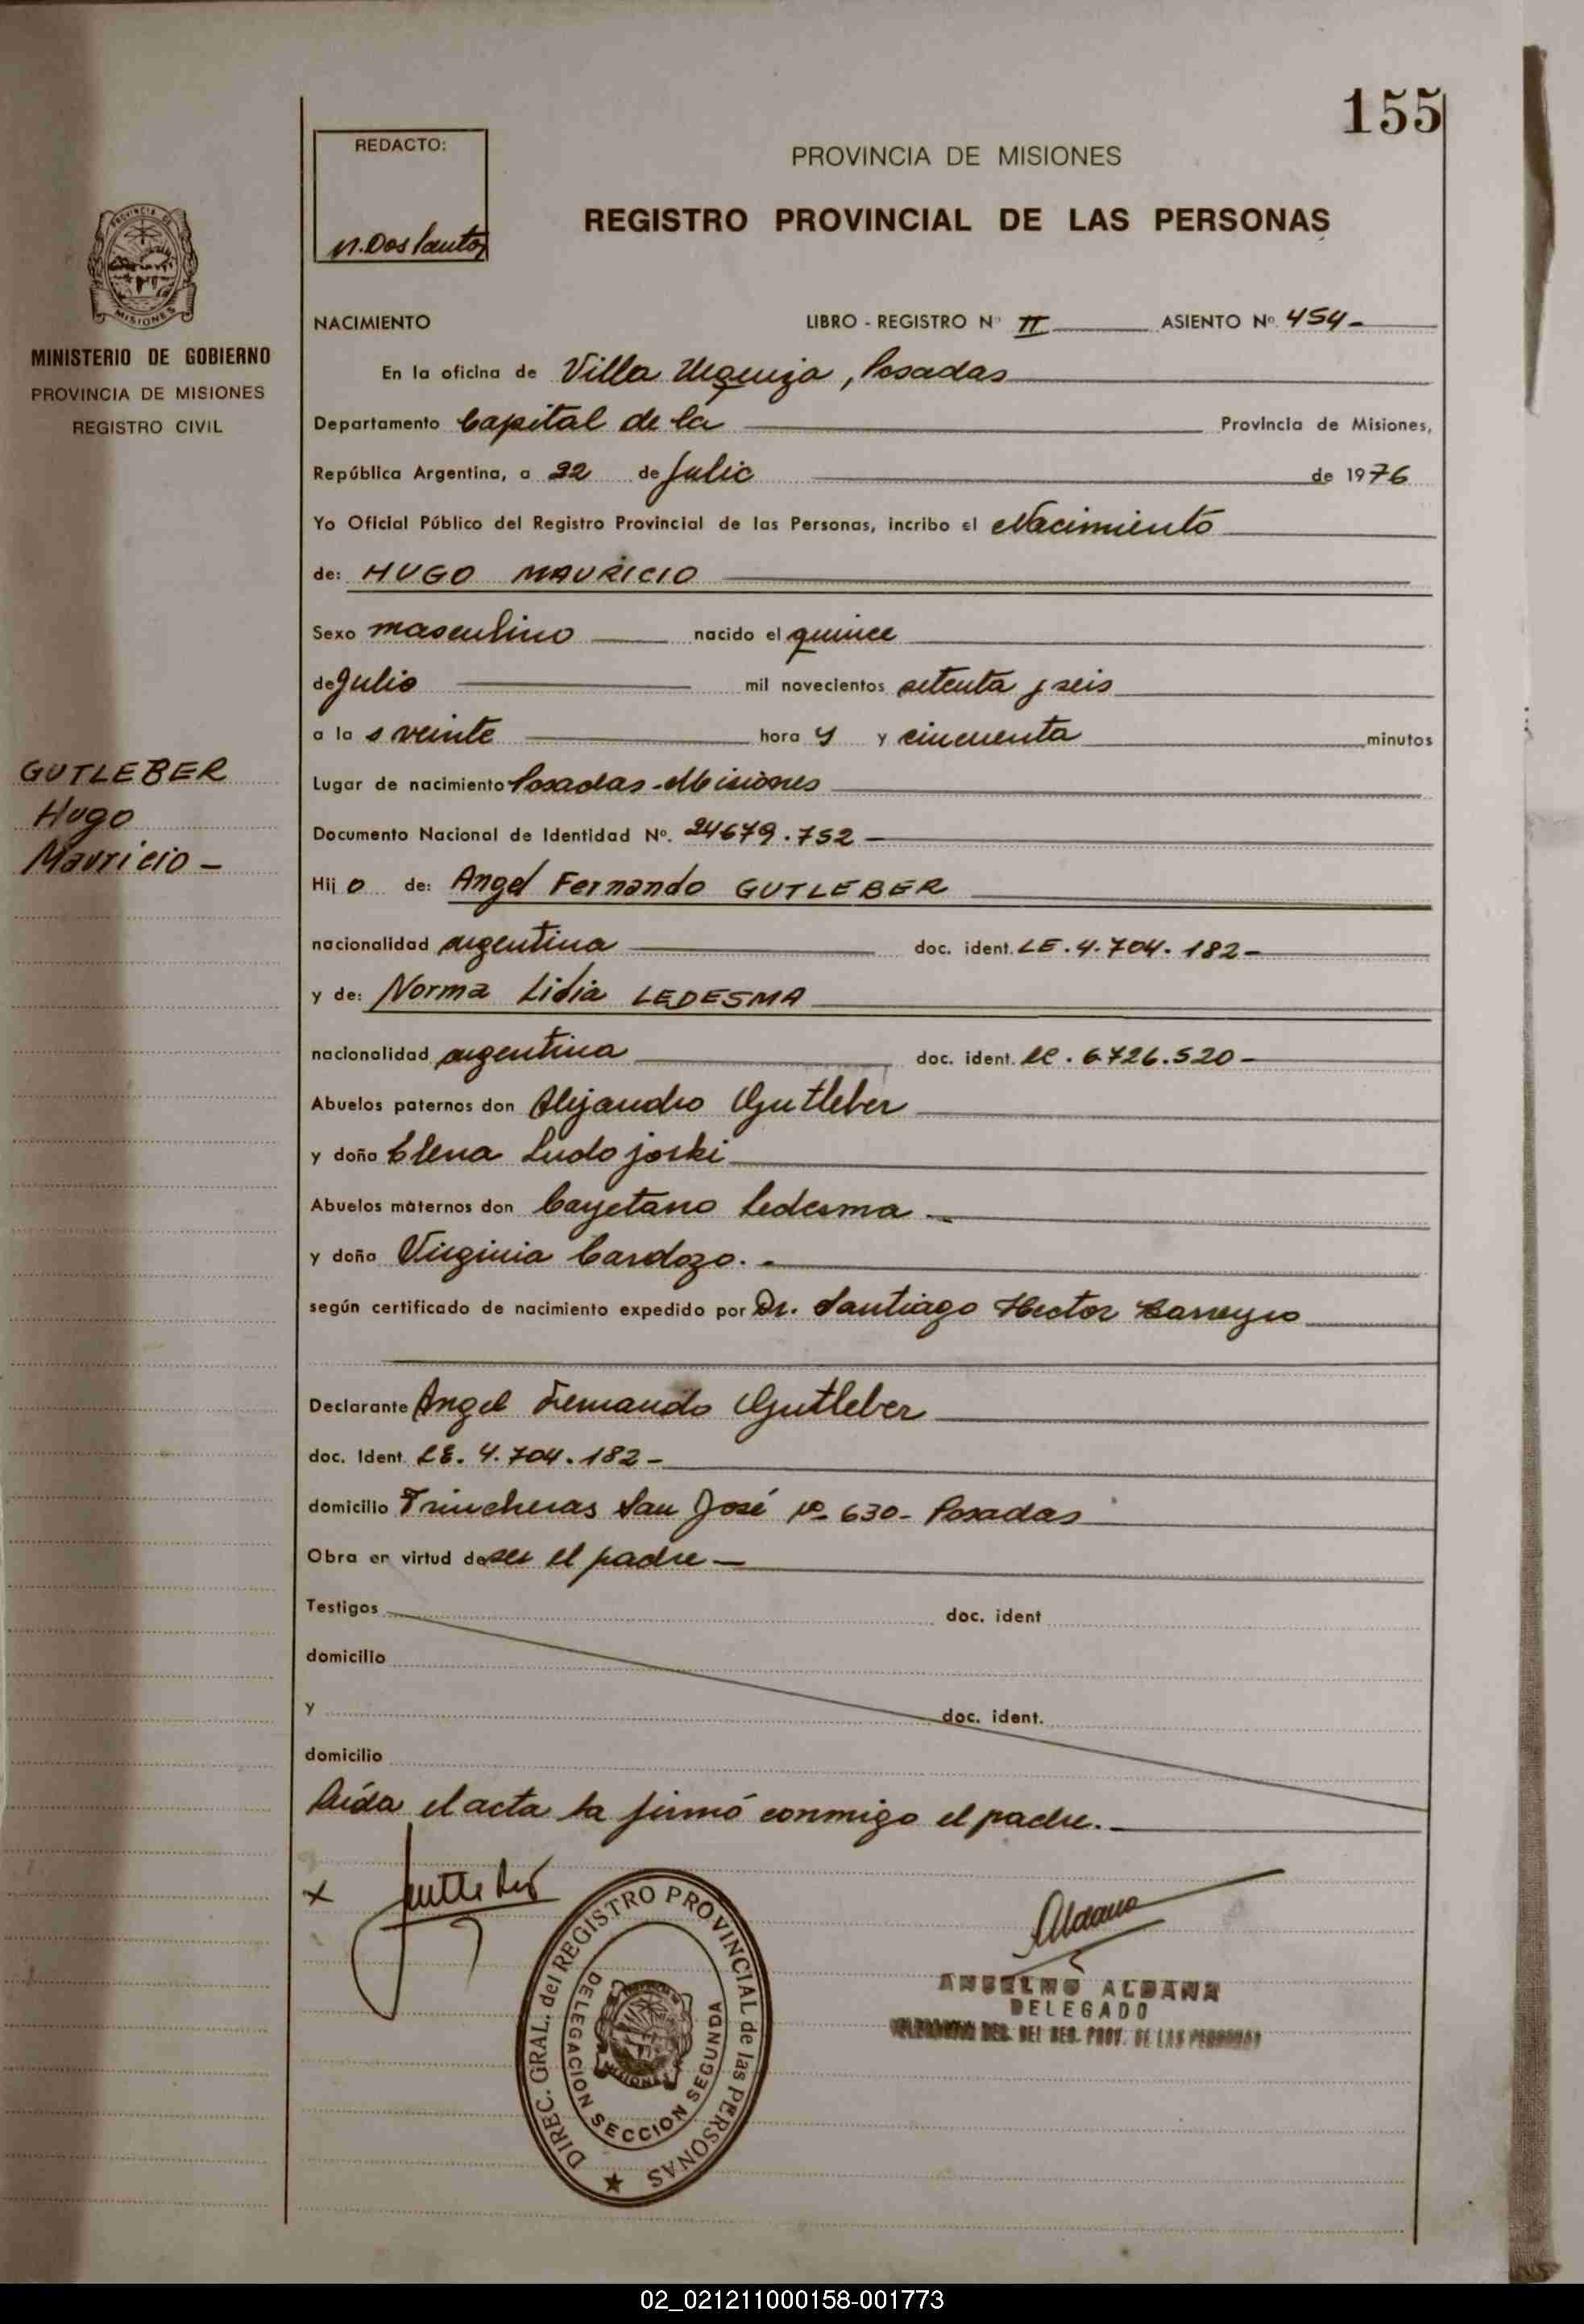 155
REDACTO:
N. Dos Santos
PROVINCIA DE MISIONES
REGISTRO PROVINCIAL DE LAS PERSONAS
PROVINCIA DE
MISIONES
MINISTERIO DE GOBIERNO
PROVINCIA DE MISIONES
REGISTRO CIVIL
NACIMIENTO LIBRO - REGISTRO Nº II ASIENTO Nº 454-
En la oficina de Villa Urquiza, Posadas
Departamento Capital de la Provincia de Misiones,
República Argentina, a 22 de Julio de 1976
Yo Oficial Público del Registro Provincial de las Personas, incribo el Nacimiento
de: HUGO MAURICIO
Sexo masculino nacido el quince
de Julio mil novecientos setenta y seis
a la s veinte hora s y cincuenta minutos
GUTLEBER
Hugo
Mauricio -
Lugar de nacimiento Posadas - Misiones
Documento Nacional de Identidad Nº. 24679.752 -
Hij o de: Angel Fernando GUTLEBER
nacionalidad argentina doc. ident. LE. 4.704.182-
y de: Norma Lidia LEDESMA
nacionalidad argentina doc. ident. LC. 6.726.520-
Abuelos paternos don Alejandro Gutleber
y doña Elena Ludojoski
Abuelos maternos don Cayetano Ledesma -
y doña Virginia Cardozo. -
según certificado de nacimiento expedido por Dr. Santiago Hector Barreyro
Declarante Angel Fernando Gutleber
doc. Ident. LE. 4.704.182-
domicilio Trincheras San José Nº 630- Posadas
Obra en virtud de ser el padre -
Testigos doc. ident
domicilio
y doc. ident.
domicilio
Leída el acta la firmó conmigo el padre.
x Gutleber
Aldana
ANSELMO ALDANA
DELEGADO
DEL REG. PROV. DE LAS PERSONAS
DIREC. GRAL. del REGISTRO PROVINCIAL de las PERSONAS
DELEGACION SECCION SEGUNDA
MISIONES
02_021211000158-001773